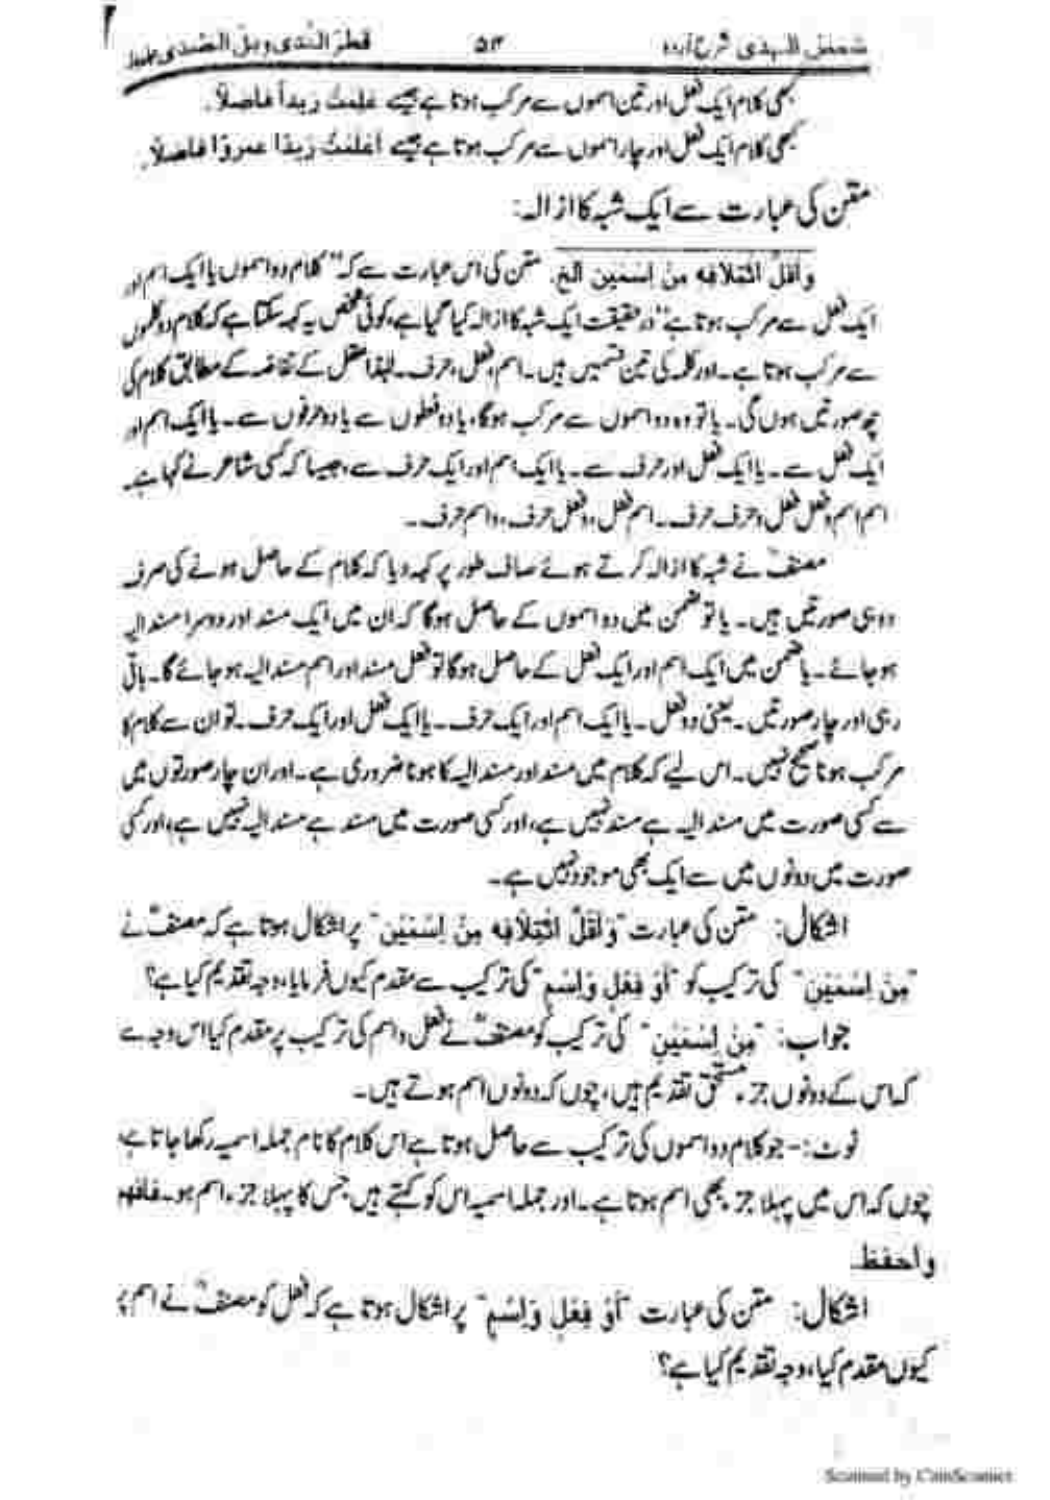 شمس الہدی شرح اردو ۵۳ قطر الندی وبل الصدی
کبھی کلام ایک فعل اور تین اسموں سے مرکب ہوتا ہے جیسے علمتُ زیداً فاضلاً۔
کبھی کلام ایک فعل اور چار اسموں سے مرکب ہوتا ہے جیسے اَعْلَمْتُ زَیْدًا عمروًا فاضلاً۔
متن کی عبارت سے ایک شبہ کا ازالہ:
وَاَقَلُّ ائْتِلَافِهٖ مِنْ اِسْمَیْنِ الخ۔ متن کی اس عبارت سے کہ "کلام دو اسموں یا ایک اسم اور
ایک فعل سے مرکب ہوتا ہے" در حقیقت ایک شبہ کا ازالہ کیا گیا ہے، کوئی شخص یہ کہہ سکتا ہے کہ کلام دو کلموں
سے مرکب ہوتا ہے۔ اور کلمہ کی تین قسمیں ہیں۔ اسم، فعل، حرف۔ لہٰذا عقل کے تقاضہ کے مطابق کلام کی
چھ صورتیں ہوں گی۔ یا تو وہ دو اسموں سے مرکب ہوگا، یا دو فعلوں سے یا دو حرفوں سے۔ یا ایک اسم اور
ایک فعل سے۔ یا ایک فعل اور حرف سے۔ یا ایک اسم اور ایک حرف سے، جیسا کہ کسی شاعر نے کہا ہے
اسم اسم و فعل فعل و حرف حرف۔ اسم فعل، و فعل حرف، و اسم حرف۔
مصنفؒ نے شبہ کا ازالہ کرتے ہوئے صاف طور پر کہہ دیا کہ کلام کے حاصل ہونے کی صرف
دو ہی صورتیں ہیں۔ یا تو ضمن میں دو اسموں کے حاصل ہوگا کہ ان میں ایک مسند اور دوسرا مسند الیہ
ہو جائے۔ یا ضمن میں ایک اسم اور ایک فعل کے حاصل ہوگا تو فعل مسند اور اسم مسند الیہ ہو جائے گا۔ باقی
رہی اور چار صورتیں۔ یعنی دو فعل۔ یا ایک اسم اور ایک حرف۔ یا ایک فعل اور ایک حرف۔ تو ان سے کلام کا
مرکب ہونا صحیح نہیں۔ اس لیے کہ کلام میں مسند اور مسند الیہ کا ہونا ضروری ہے۔ اور ان چار صورتوں میں
سے کسی صورت میں مسند الیہ ہے مسند نہیں ہے، اور کسی صورت میں مسند ہے مسند الیہ نہیں ہے، اور کسی
صورت میں دونوں میں سے ایک بھی موجود نہیں ہے۔
اشکال: متن کی عبارت "وَاَقَلُّ ائْتِلَافِهٖ مِنْ اِسْمَیْنِ" پر اشکال ہوتا ہے کہ مصنفؒ نے
"مِنْ اِسْمَیْنِ" کی ترکیب کو "اَوْ فِعْلٍ وَاِسْمٍ" کی ترکیب سے مقدم کیوں فرمایا، وجہ تقدیم کیا ہے؟
جواب: "مِنْ اِسْمَیْنِ" کی ترکیب کو مصنفؒ نے فعل و اسم کی ترکیب پر مقدم کیا اس وجہ سے
کہ اس کے دونوں جزء مستحق تقدیم ہیں، چوں کہ دونوں اسم ہوتے ہیں۔
نوٹ:- جو کلام دو اسموں کی ترکیب سے حاصل ہوتا ہے اس کلام کا نام جملہ اسمیہ رکھا جاتا ہے
چوں کہ اس میں پہلا جز بھی اسم ہوتا ہے۔ اور جملہ اسمیہ اس کو کہتے ہیں جس کا پہلا جزء اسم ہو۔ فافهم
واحفظ۔
اشکال: متن کی عبارت "اَوْ فِعْلٍ وَاِسْمٍ" پر اشکال ہوتا ہے کہ فعل کو مصنفؒ نے اسم پر
کیوں مقدم کیا، وجہ تقدیم کیا ہے؟
Scanned by CamScanner